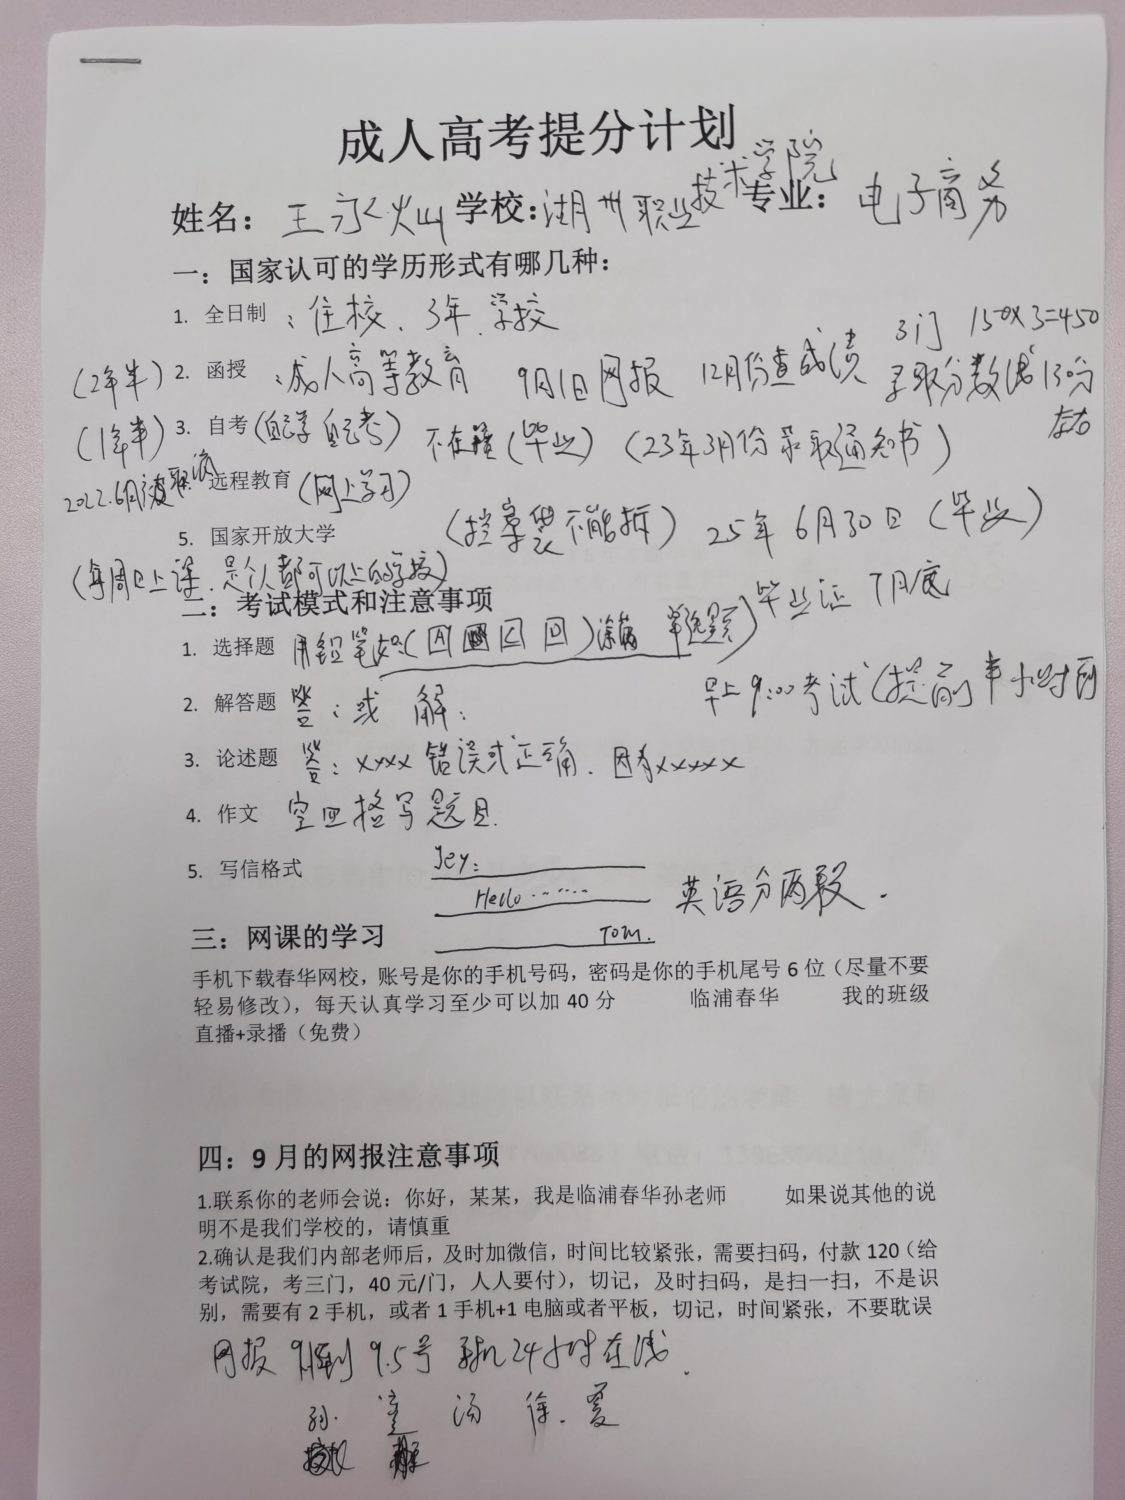 成人高考提分计划
姓名：王永灿 学校：湖州职业技术学院 专业：电子商务
一：国家认可的学历形式有哪几种：
1. 全日制：住校、3年、学校
3门 150×3=450
(2年半) 2. 函授：成人高等教育 9月1日网报 12月份查成绩 录取分数线130分
左右
(1年半) 3. 自考(自己学 自己考) 不在籍(毕业) (23年3月份录取通知书)
2022.6月被取消 远程教育(网上学习)
5. 国家开放大学 (档案袋不能拆) 25年6月30日(毕业)
(每周日上课.是个人都可以上的学校)
二：考试模式和注意事项 毕业证 7月底
1. 选择题 用铅笔如:(A C D)涂满 单选题)
早上9:00考试(提前半小时到
2. 解答题 答：或 解：
3. 论述题 答：xxxx 错误或正确、因为xxxxx
4. 作文 空四格写题目.
5. 写信格式
Hello .......
英语分两段.
Tom.
三：网课的学习
手机下载春华网校，账号是你的手机号码，密码是你的手机尾号 6 位（尽量不要
轻易修改），每天认真学习至少可以加 40 分 临浦春华 我的班级
直播+录播（免费）
四：9 月的网报注意事项
1.联系你的老师会说：你好，某某，我是临浦春华孙老师 如果说其他的说
明不是我们学校的，请慎重
2.确认是我们内部老师后，及时加微信，时间比较紧张，需要扫码，付款 120（给
考试院，考三门，40 元/门，人人要付），切记，及时扫码，是扫一扫，不是识
别，需要有 2 手机，或者 1 手机+1 电脑或者平板，切记，时间紧张，不要耽误
网报 9.1到 9.5号 手机24小时在线.
孙. 汤 徐.